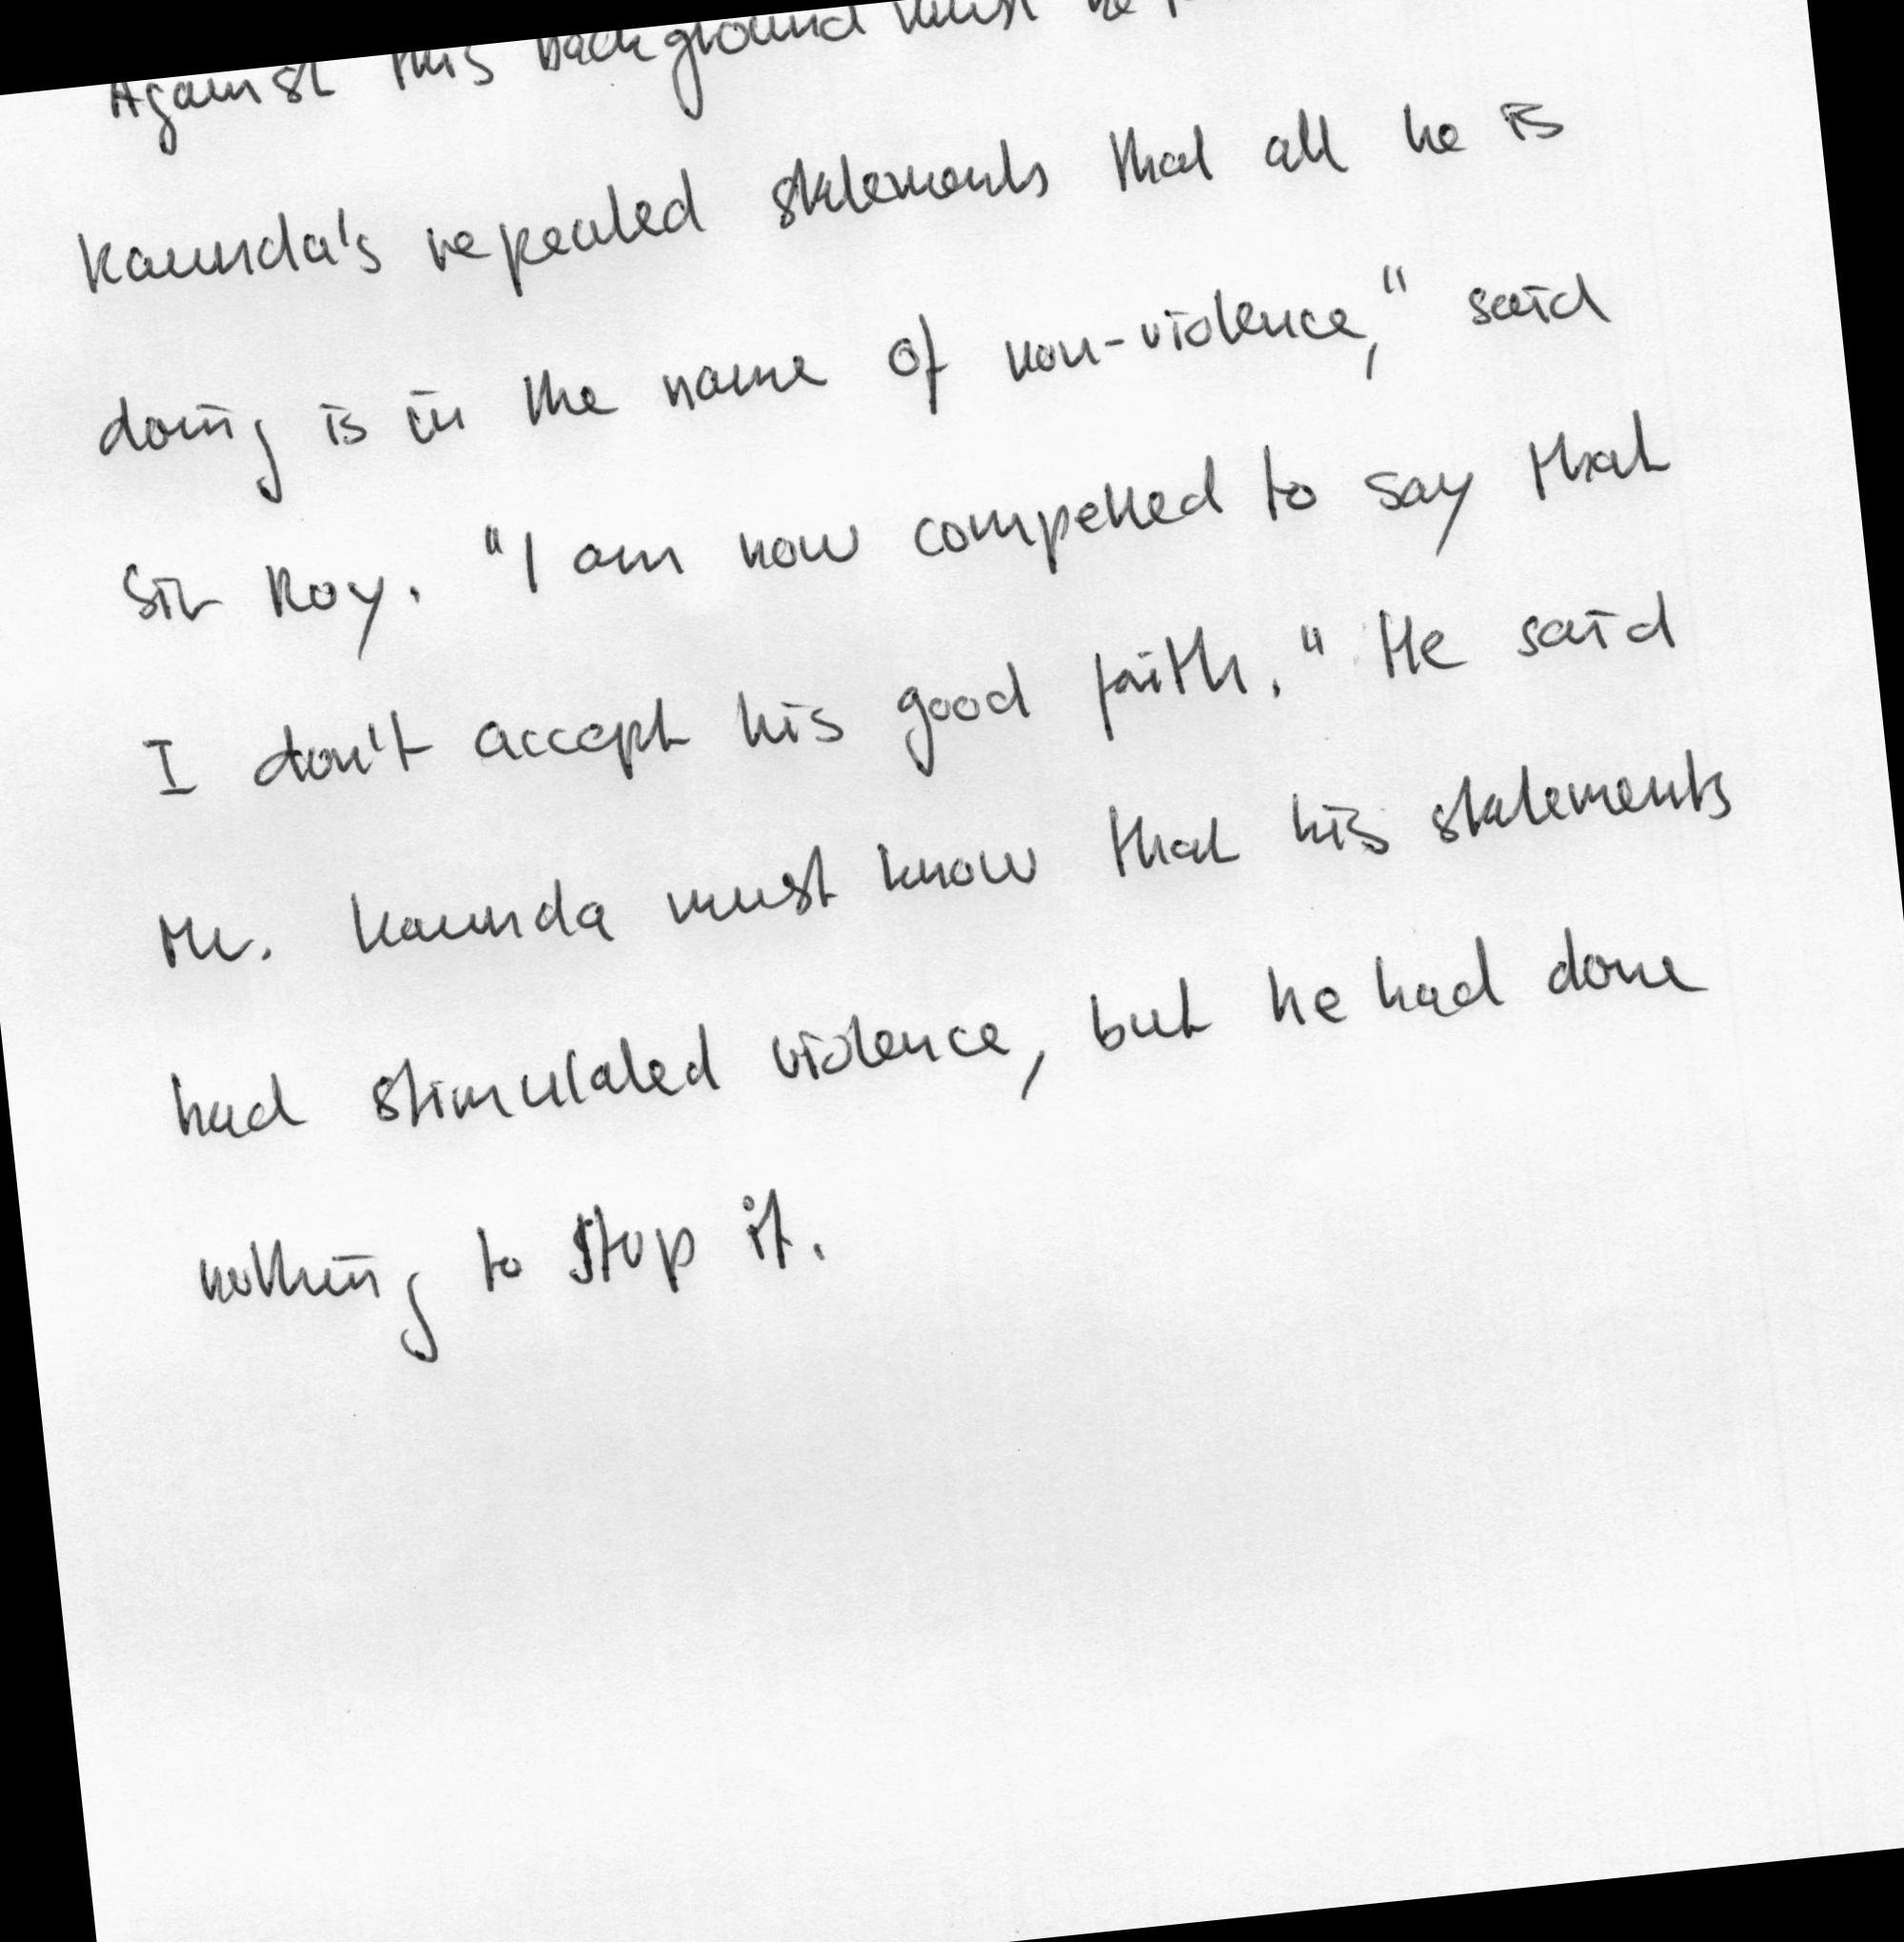 Against this background must be
Kaunda's repeated statements that all he is
doing is in the name of non-violence," said
Sir Roy. "I am now compelled to say that
I don't accept his good faith." He said
Mr. Kaunda must know that his statements
had stimulated violence, but he had done
nothing to stop it.